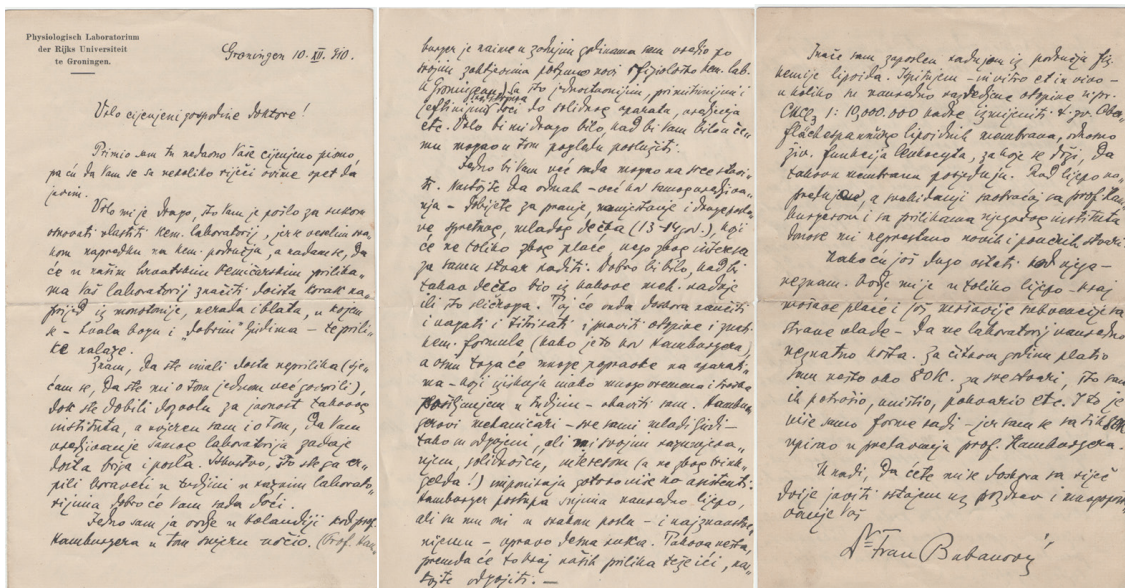 Physiologisch Laboratorium
der Rijks Universiteit
te Groningen.
Groningen 10. XII. 910.
Vrlo cijenjeni gospodine doktore!
Primio sam tu nedavno Vaše cijenjeno pismo,
pa ću da Vam se sa nekoliko riječi ovime opet da
javim.
Vrlo mi je drago, što Vam je pošlo za rukom
otvoriti vlastiti kem. laboratorij, jer se veselim sva-
kom napredku na kem. području, a nadam se, da
će u našim hrvatskim kemičarskim prilika-
ma Vaš laboratorij značiti doista korak na-
prijed iz monotonije, nerada i blata, u kojem
se - hvala bogu i "dobrim" ljudima - te prili-
ke nalaze.
Znam, da ste imali dosta neprilika (sje-
ćam se, da ste mi o tom jednom već govorili),
dok ste dobili dozvolu za javnost takovog
instituta, a uvjeren sam i o tom, da Vam
uredjivanje samog laboratorija zadaje
dosta briga i posla. Iskustvo, što ste ga cr-
pili boraveći u tudjini u raznim laborato-
rijima dobro će Vam sada doći.
Jedno sam ja ovdje u Holandiji kod prof.
Hamburgera u tom smjeru učio. (Prof. Ham-
burger je naime u zadnjim godinama sam uredio po
svojim zahtjevima potpuno novi fiziološko kem. lab.
u Groningenu) a što jednostavnijim, primitivnijim i
jeftinijim doći do solidnog aparata, uredjaja
etc. Vrlo bi mi drago bilo, kad bi Vam bilo u če-
mu mogao u tom pogledu poslužiti.
Jedno bi Vam već sada mogao na srce stavi-
ti. Nastojte da odmah - već kod samog uredjiva-
nja - dobijete za pranje, namještanje i druge poslo-
ve spretnog, mladog dečka (13-14 god.), koji
će ne toliko zbog plaće nego zbog interesa
za samu stvar raditi. Dobro bi bilo, kad bi
takav dečko bio iz kakove meh. radnje
ili što sličnoga. Taj će onda doskora naučiti
i vagati i titrirati i praviti otopine i znati
kem. formula (kako je to kod Hamburgera),
a osim toga će mnoge popravke na aparati-
ma - koji iziskuju inako mnogo vremena i troška
pošiljanjem u tudjinu - obaviti sam. Hambur-
gerovi mehaničari - sve sami mladi ljudi -
tako su odgojeni, ali i svojim razumijeva-
njem, solidnošću, interesom (a ne zbog trink-
gelda!) imponiraju gotovo više no asistenti.
Hamburger postupa s njima vanredno lijepo,
ali su mu oni u svakom poslu - i najznanstve-
nijemu - upravo desna ruka. Takova nešta,
premda će to kraj naših prilika teže ići, na-
stojte odgojiti. —
Inače sam zaposlen radnjom iz područja fiz.
kemije lipoida. Ispitujem - in vitro et in vivo -
u koliko su vanredno razrijedjene otopine n.pr.
CHCl3 1:10,000.000 kadre izmijeniti t. zv. Ober-
flächespannung lipoidnih membrana, odnosno
živ. funkcija leukocyta, za koje se drži, da
takovu membranu posjeduju. Rad lijepo na-
preduje, a svakidanji saobraćaj sa prof. Ham-
burgerom i sa prilikama njegovog instituta
donose mi neprestano novih i poučnih stvari.
Kako ću još dugo ostati kod njega -
neznam. Ovdje mi je u toliko lijepo - kraj
mjesečne plaće i još nestašije subvencije sa
strane vlade - da me laboratorij vanredno
neznatno košta. Za čitavu godinu platio
sam nešto oko 80K. za sve stvari, što sam
ih potrošio, uništio, pokvario etc. I to je
više samo forme radi - jer sam se sa tih 80K
upisao u predavanja prof. Hamburgera.
U nadi, da ćete mi k doskora sa riječ
dvije javiti ostajem uz pozdrav i
Vaš
Dr Fran Bubanović